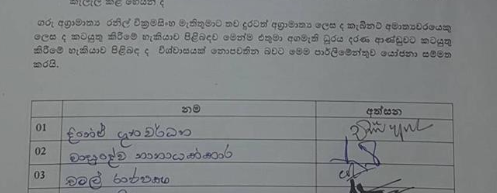 කැලැල් කළ හෙයින් ද
ගරු අග්‍රාමාත්‍ය රනිල් වික්‍රමසිංහ මැතිතුමාට තව දුරටත් අග්‍රාමාත්‍ය ලෙස ද කැබිනට් අමාත්‍යවරයෙකු
ලෙස ද කටයුතු කිරීමේ හැකියාව පිළිබඳව මෙන්ම එතුමා අගමැති ධූරය දරණ ආණ්ඩුවට කටයුතු
කිරීමේ හැකියාව පිළිබඳ ද විශ්වාසයක් නොපවතින බවට මෙම පාර්ලිමේන්තුව යෝජනා සම්මත
කරයි.
නම අත්සන
01 දිනේෂ් ගුණවර්ධන
02 වාසුදේව නානායක්කාර
03 චමල් රාජපක්ෂ